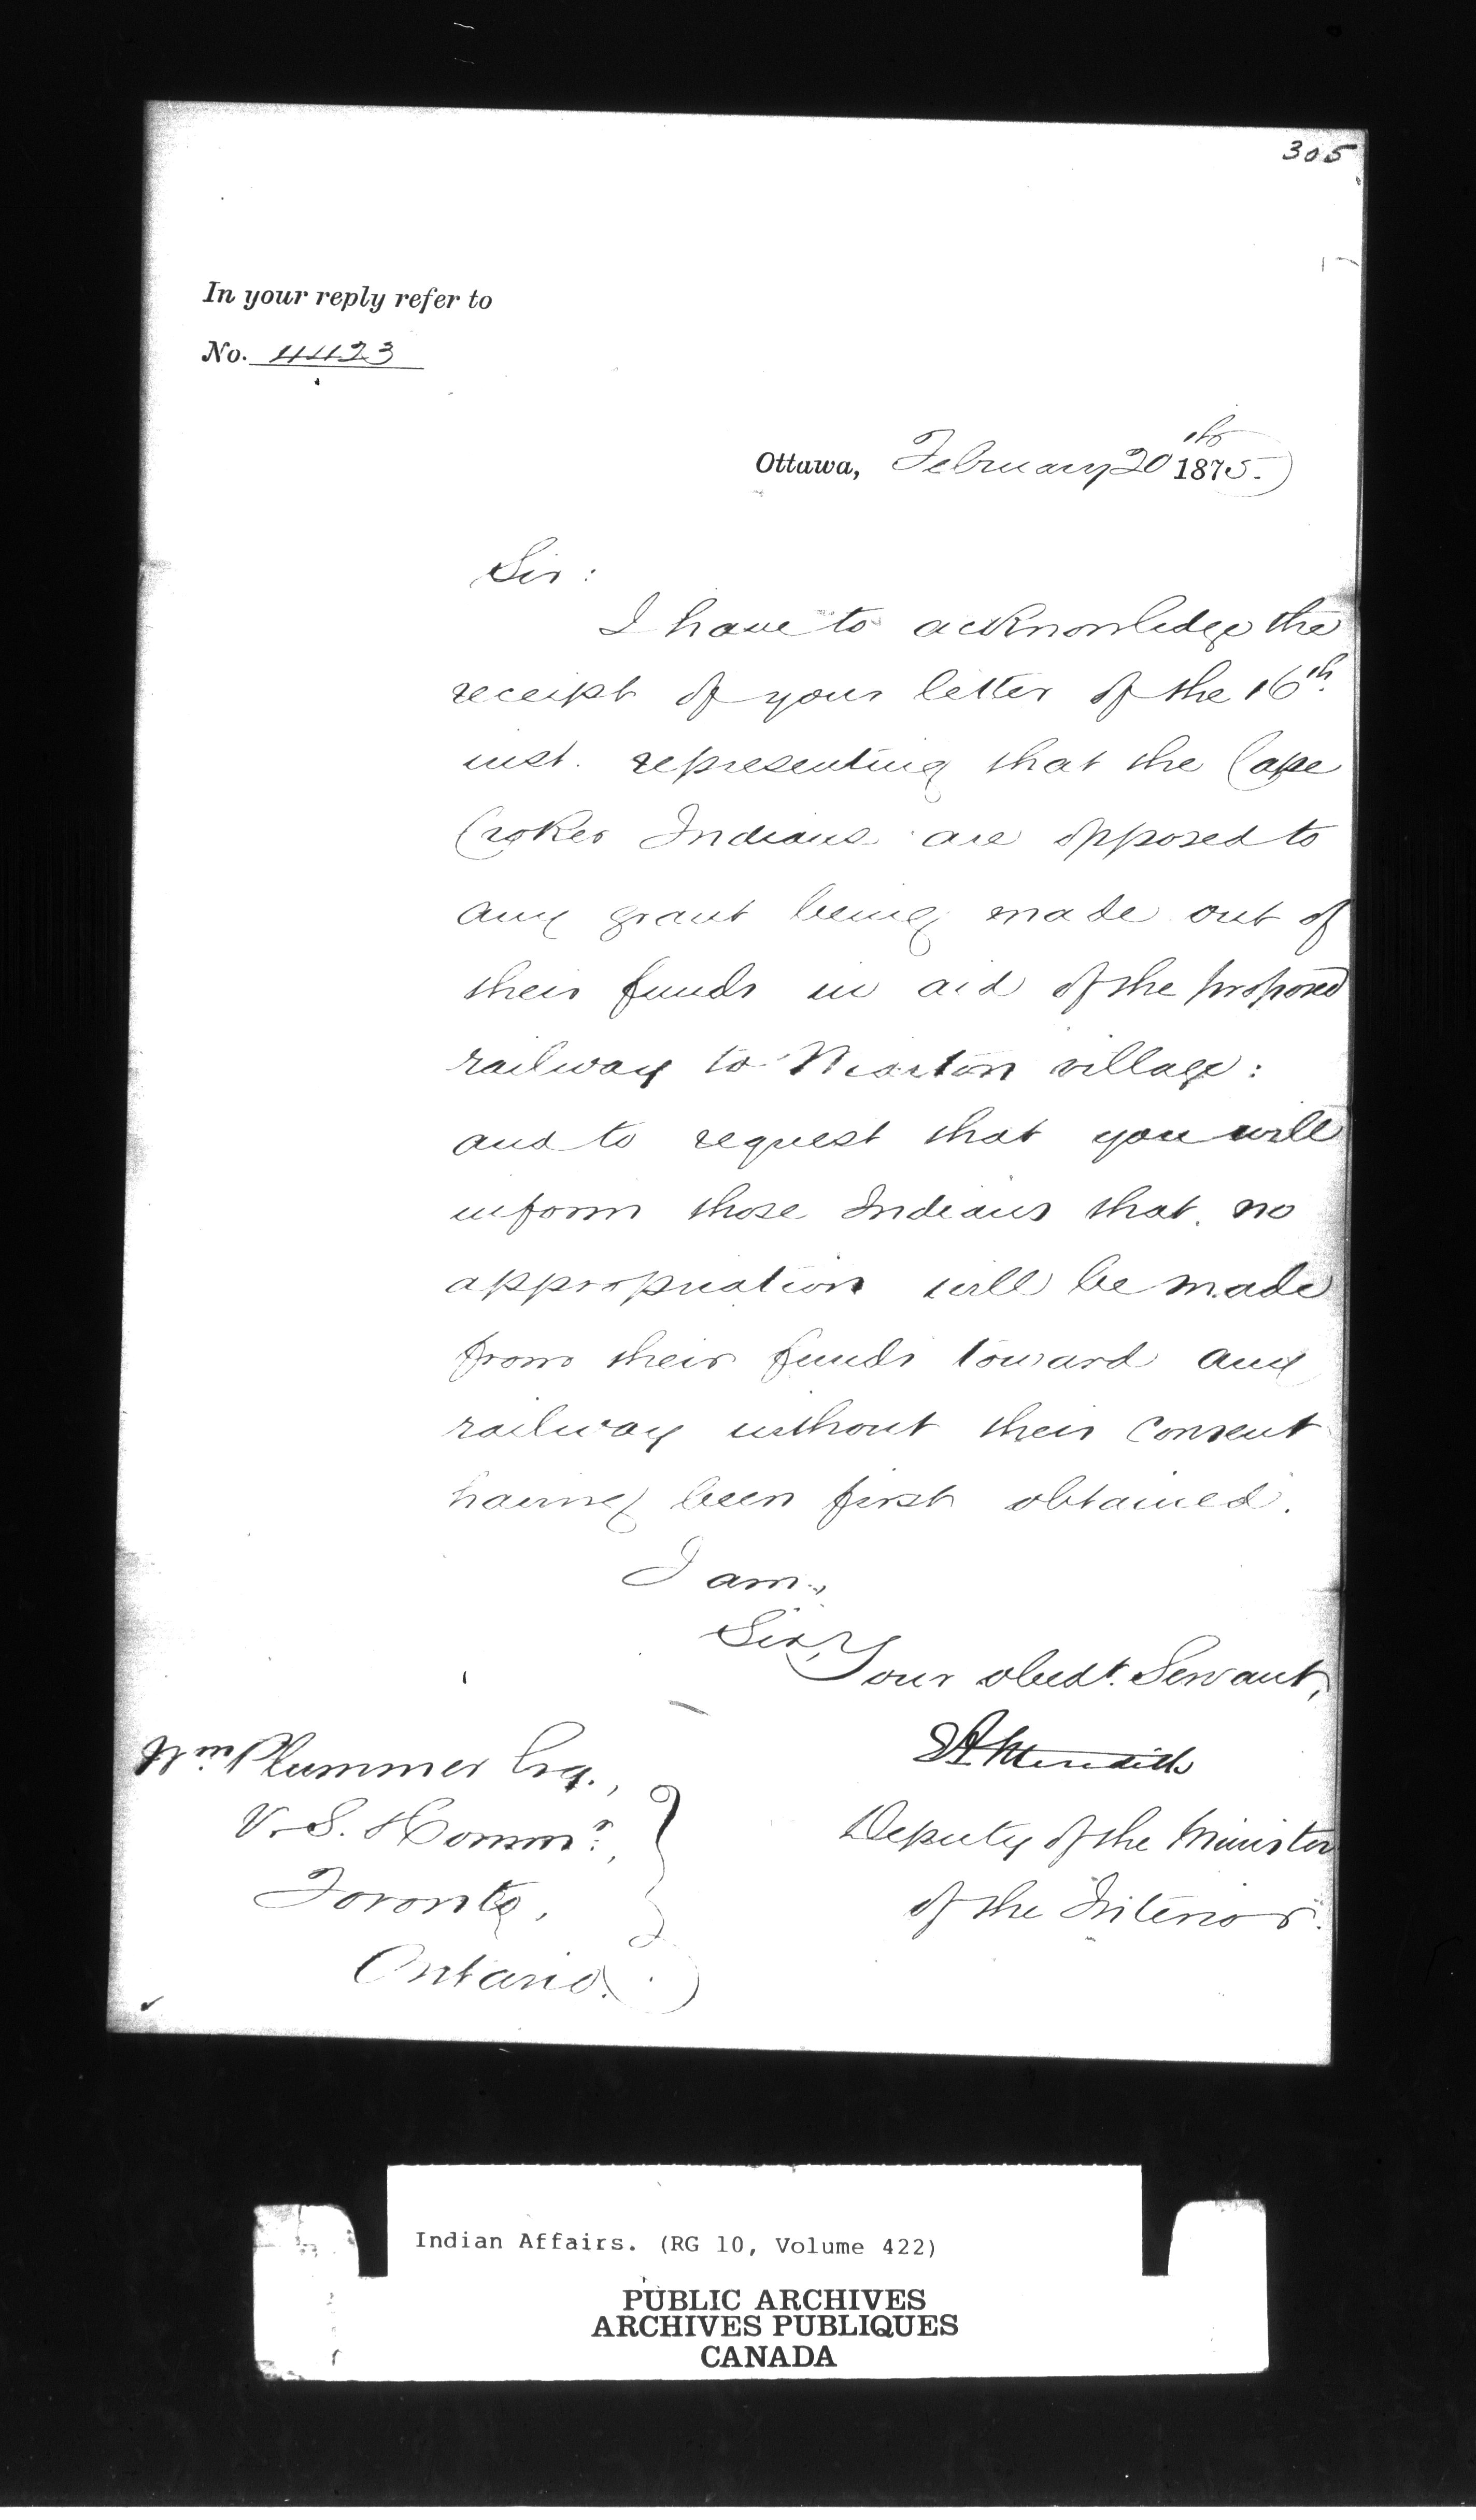 305
In your reply refer to
No. 4423
Ottawa, February 20th 1875.
Sir:
I have to acknowledge the
receipt of your letter of the 16th
inst. representing that the Cape
Croker Indians are opposed to
any grant being made out of
their funds in aid of the proposed
railway to Wiarton village:
and to request that you will
inform those Indians that no
appropriation will be made
from their funds toward any
railway without their consent
having been first obtained.
I am,
Sir,
Your obedt. Servant,
EA Meredith
Deputy of the Minister
of the Interior.
Wm Plummer Esq.,
V. S. Commr.,
Toronto,
Ontario.
Indian Affairs. (RG 10, Volume 422)
PUBLIC ARCHIVES
ARCHIVES PUBLIQUES
CANADA